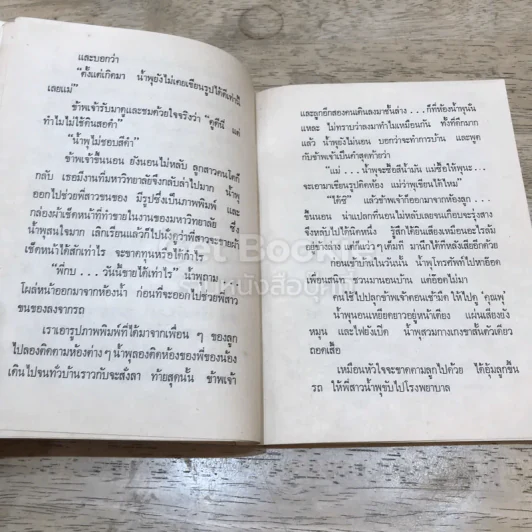 และบอกว่า
"ตั้งแต่เกิดมา น้ำพุยังไม่เคยเขียนรูปได้ดีเท่านี้
เลยแม่"
ข้าพเจ้ารับมาดูและชมด้วยใจจริงว่า "ดูดีนี่ แต่
ทำไมไม่ใช้ดินสอดำ"
"น้ำพุไม่ชอบสีดำ"
ข้าพเจ้าขึ้นนอน ยังนอนไม่หลับ ลูกสาวคนโตก็
กลับ เธอมีงานที่มหาวิทยาลัยจึงกลับล่าไปมาก น้ำพุ
ออกไปช่วยพี่สาวขนของ มีรูปซึ่งเป็นภาพพิมพ์ และ
กล่องผ้าเช็ดหน้าที่ทำขายในงานของมหาวิทยาลัย ซึ่ง
น้ำพุสนใจมาก เลิกเรียนแล้วก็ไปนั่งดูพี่สาวจะขายผ้า
เช็ดหน้าได้สักเท่าไร จะขาดทุนหรือได้กำไร
"พี่กบ . . . วันนี้ขายได้เท่าไร" น้ำพุถาม
โผล่หน้าออกมาจากห้องน้ำ ก่อนที่จะออกไปช่วยพี่สาว
ขนของลงจากรถ
เราเอารูปภาพพิมพ์ที่ได้มาจากเพื่อน ๆ ของลูก
ไปลองติดตามห้องต่าง ๆ น้ำพุลองติดห้องของพี่ของน้อง
เดินไปจนทั่วบ้านราวกับจะสั่งลา ท้ายสุดนั้น ข้าพเจ้า
และลูกอีกสองคนเดินลงมาชั้นล่าง . . . ก็ที่ห้องน้ำพุนั่น
แหละ ไม่ทราบว่าลงมาทำไมเหมือนกัน ทั้งที่ดึกมาก
แล้ว น้ำพุยังไม่นอน บอกว่าจะทำการบ้าน และพูด
กับข้าพเจ้าเป็นคำสุดท้ายว่า
"แม่ . . . น้ำพุจะซื้อสีน้ำมัน แม่ซื้อให้พุนะ . . .
จะเอามาเขียนรูปติดห้อง แม่ว่าพุเขียนได้ไหม"
"ได้ซี" แล้วข้าพเจ้าก็ออกมาจากห้องลูก . . .
ขึ้นนอน น่าแปลกที่นอนไม่หลับเลยจนเกือบจะรุ่งสาง
จึงหลับไปได้นิดหนึ่ง รู้สึกได้ยินเสียงเหมือนอะไรล้ม
อยู่ข้างล่าง แต่ก็แว่ว ๆ เต็มที มานึกได้ทีหลังเสียอีกด้วย
ก่อนเข้าบ้านในวันนั้น น้ำพุโทรศัพท์ไปหาอ๊อด
เพื่อนสนิท ชวนมานอนบ้าน แต่อ๊อดไม่มา
คนใช้ไปปลุกข้าพเจ้าตอนเช้ามืด ให้ไปดู 'คุณพุ'
น้ำพุนอนเหยียดยาวอยู่หน้าห้อง แผ่นเสียงยัง
หมุน และไฟยังเปิด น้ำพุสวมกางเกงขาสั้นตัวเดียว
ถอดเสื้อ
เหมือนหัวใจจะขาดตามลูกไปด้วย ได้อุ้มลูกขึ้น
รถ ให้พี่สาวน้ำพุขับไปโรงพยาบาล